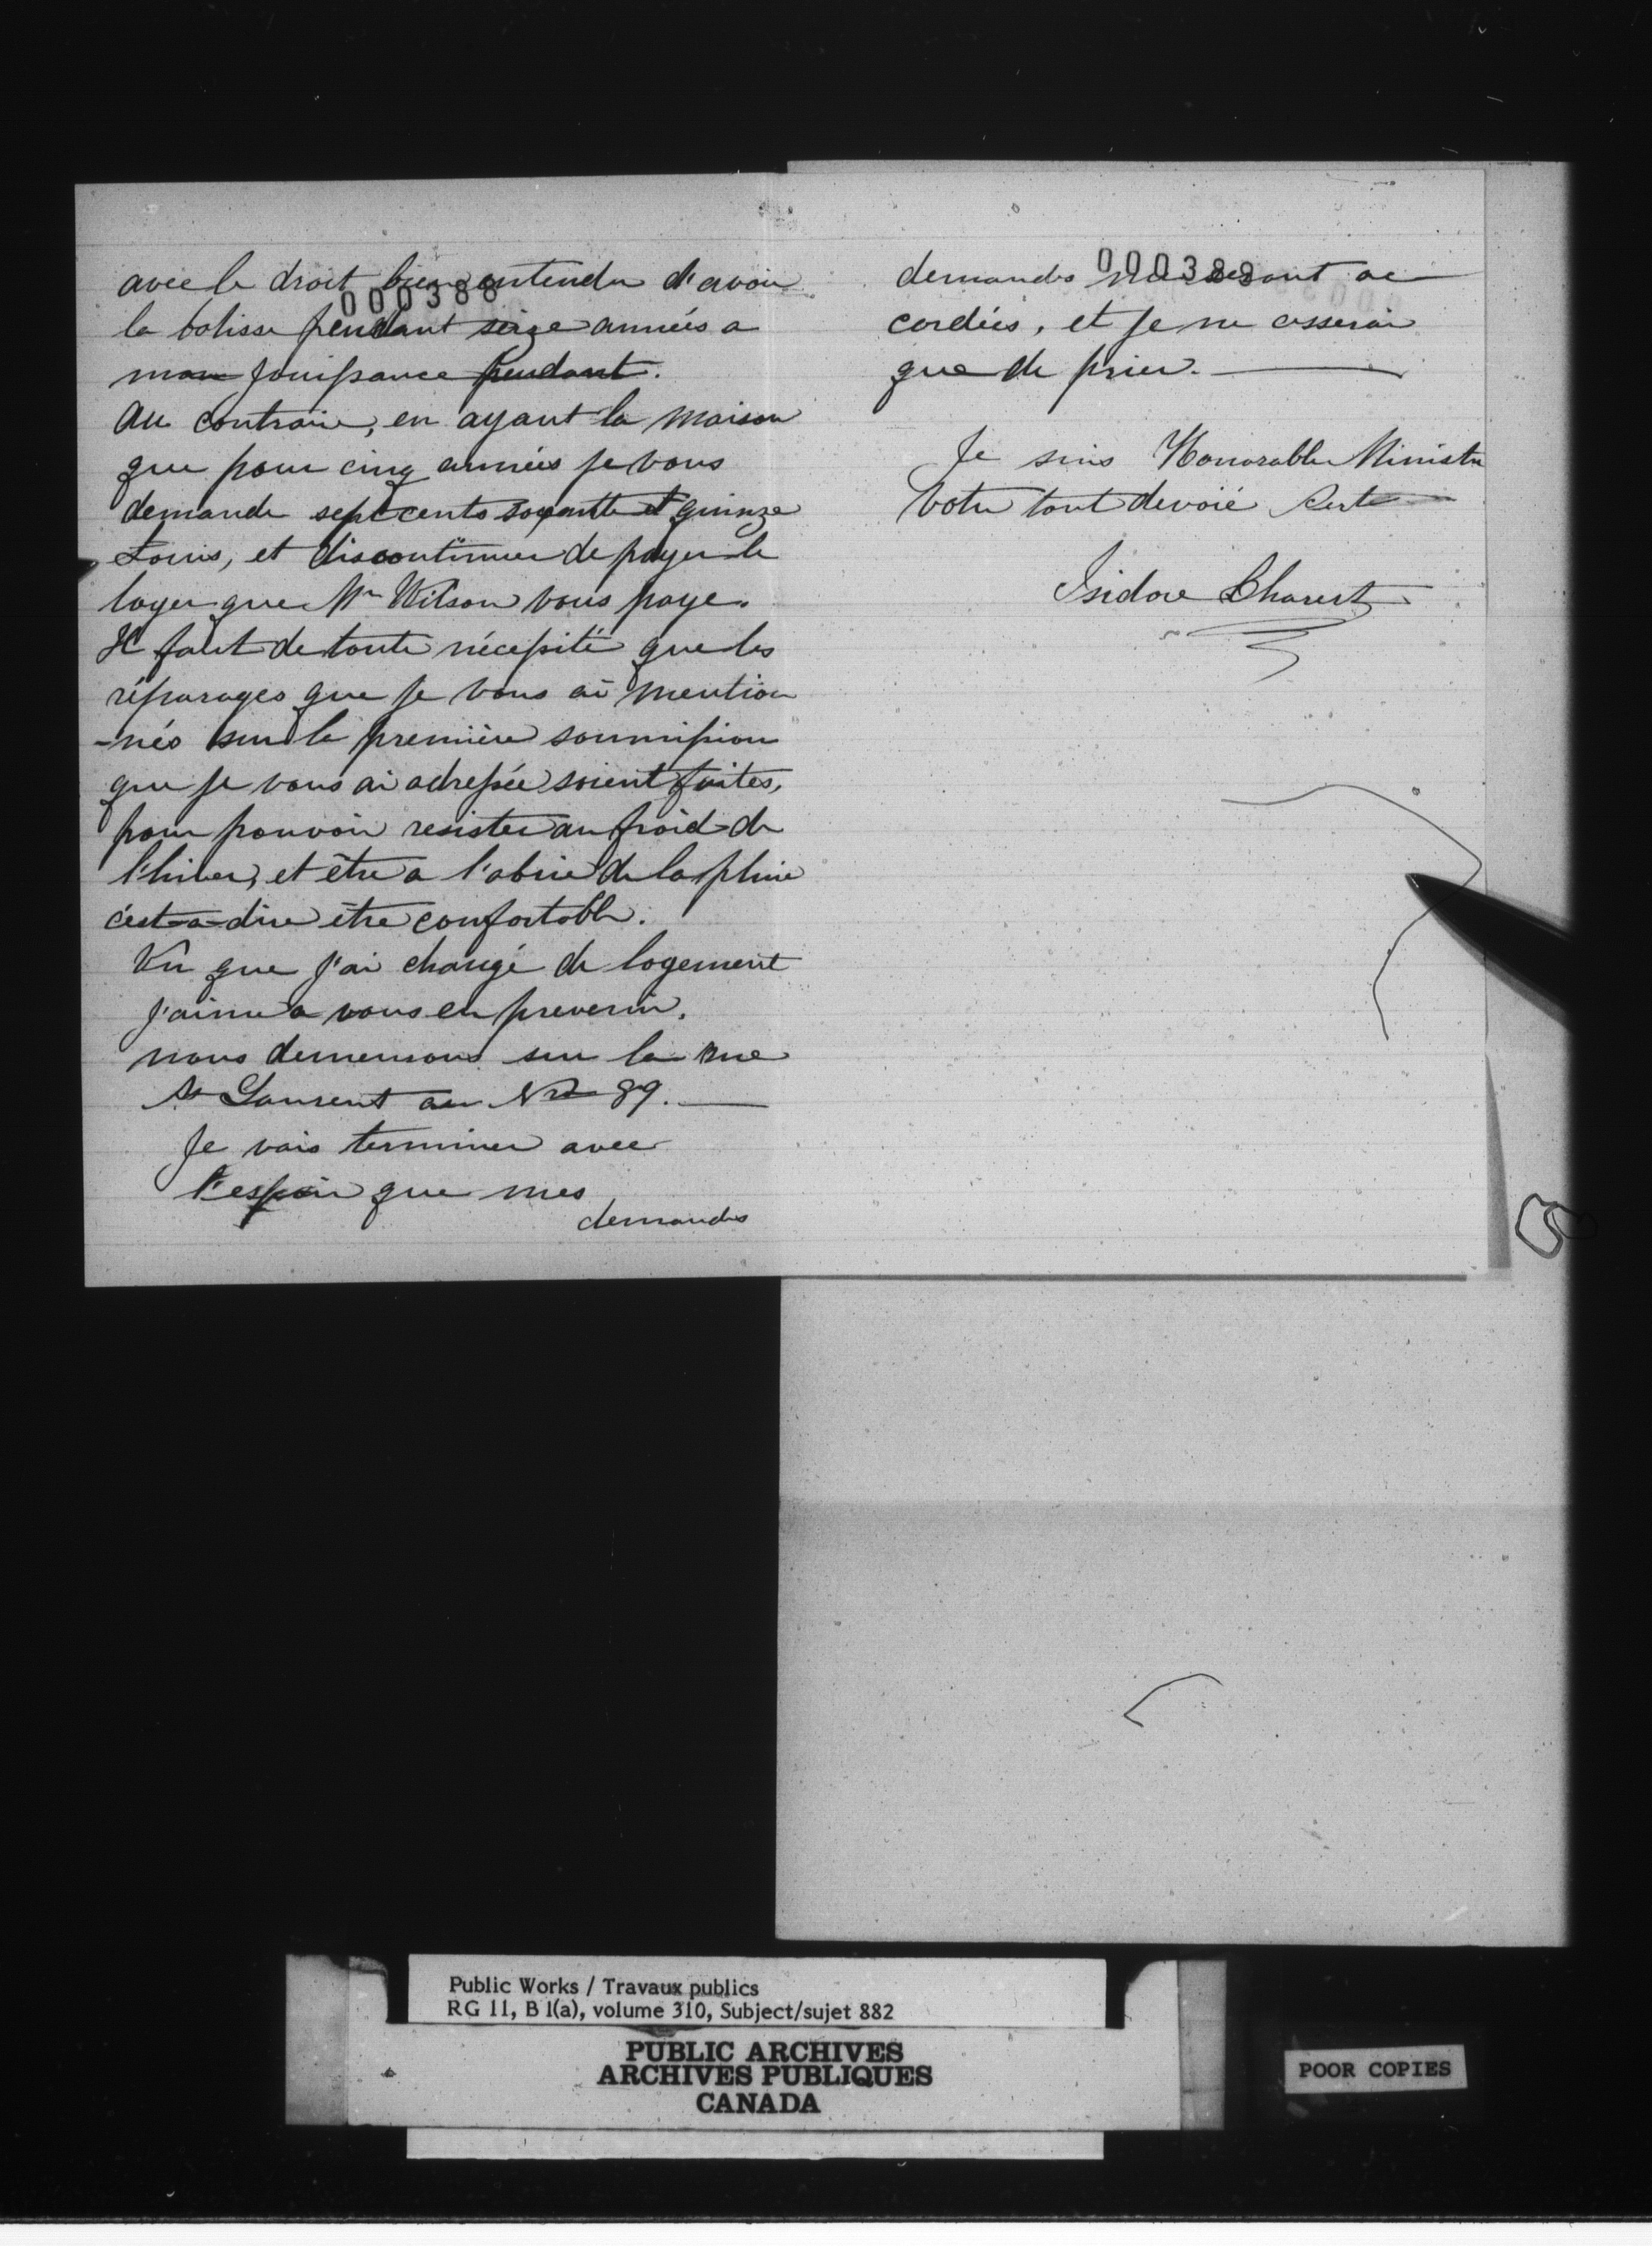 000388
avec le droit bien entendu d'avoir
la batisse pendant seize années a
mon jouissance pendant.
Au contraire, en ayant la maison
que pour cinq années je vous
demande sept cents soyante et quinze
Louis, et discontinuer de payer le
loyer que Mr Wilson vous paye.
Il faut de toute nécessité que les
réparages que je vous ai mention
-nés sur la première soumission
que je vous ai adressée soient faites,
pour pouvoir resister au froid de
l'hiver, et être a l'abrie de la pluie
c'est-a-dire être confortable.
Vu que j'ai changé de logement
j'aime a vous en prevenir.
nous demeurons sur la rue
St Laurent au No 89.
Je vais terminer avec
l'espoir que mes
demandes
000388
demandes me seront ac
cordées, et je ne cesserai
que de prier.
Je suis Honorable Ministre
Votre tout devoié
Isidore Charest
Public Works / Travaux publics
RG 11, B 1(a), volume 310, Subject/sujet 882
PUBLIC ARCHIVES
ARCHIVES PUBLIQUES
CANADA
POOR COPIES